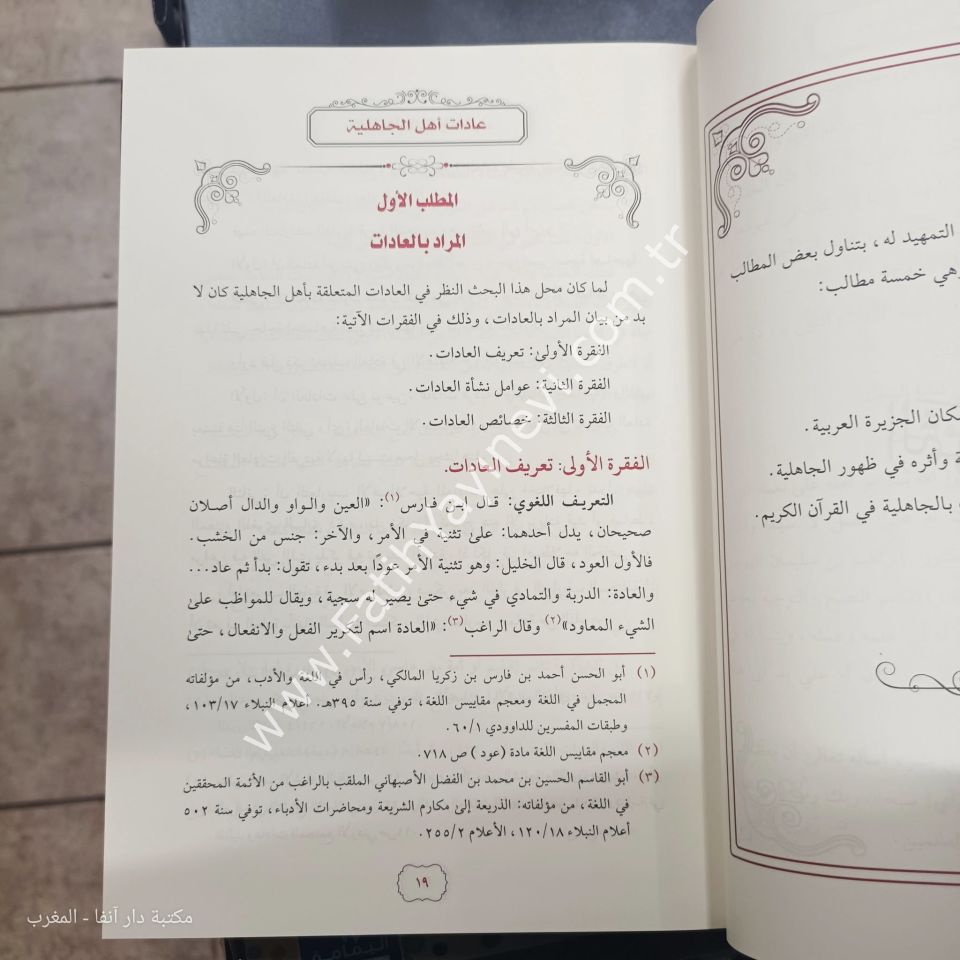 عادات أهل الجاهلية
المطلب الأول
المراد بالعادات
لما كان محل هذا البحث النظر في العادات المتعلقة بأهل الجاهلية كان لا
بد من بيان المراد بالعادات، وذلك في الفقرات الآتية:
الفقرة الأولى: تعريف العادات.
الفقرة الثانية: عوامل نشأة العادات.
الفقرة الثالثة: خصائص العادات.
الفقرة الأولى: تعريف العادات.
التعريف اللغوي: قال ابن فارس(١): «العين والواو والدال أصلان
صحيحان، يدل أحدهما: على تثنية في الأمر، والآخر: جنس من الخشب.
فالأول العود، قال الخليل: وهو تثنية الأمر عودًا بعد بدء، تقول: بدأ ثم عاد...
والعادة: الدربة والتمادي في شيء حتى يصير له سجية، ويقال للمواظب على
الشيء المعاود»(٢) وقال الراغب(٣): «العادة اسم لتكرير الفعل والانفعال، حتى
(١) أبو الحسن أحمد بن فارس بن زكريا المالكي، رأس في اللغة والأدب، من مؤلفاته
المجمل في اللغة ومعجم مقاييس اللغة، توفي سنة ٣٩٥هـ. أعلام النبلاء ١٠٣/١٧،
وطبقات المفسرين للداوودي ٦٠/١.
(٢) معجم مقاييس اللغة مادة (عود) ص ٧١٨.
(٣) أبو القاسم الحسين بن محمد بن الفضل الأصبهاني الملقب بالراغب من الأئمة المحققين
في اللغة، من مؤلفاته: الذريعة إلى مكارم الشريعة ومحاضرات الأدباء، توفي سنة ٥٠٢
أعلام النبلاء ١٢٠/١٨، الأعلام ٢٥٥/٢.
١٩
التمهيد له، بتناول بعض المطالب
وهي خمسة مطالب:
كان الجزيرة العربية.
وأثره في ظهور الجاهلية.
بالجاهلية في القرآن الكريم.
www.Fatihyayinevi.com.tr
مكتبة دار آنفا - المغرب